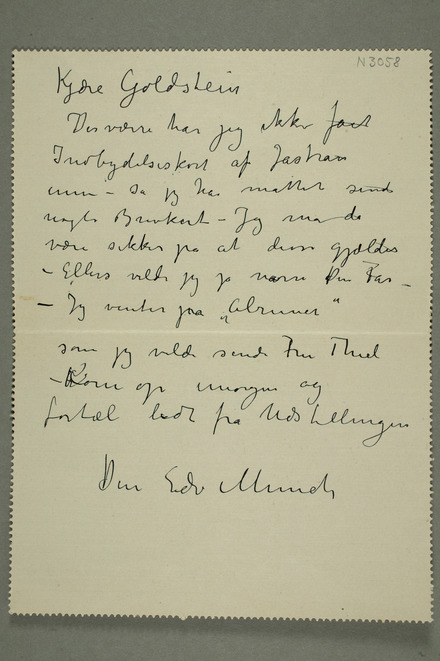 N3058
Kjære Goldstein
Desværre har jeg ikke faat
Indbydelseskort af Jastrau
ennu – så jeg har måttet sende
nogle Brevkort – Jeg må da
være sikker på at disse gjælder
– Ellers vilde jeg jo narre Din Far –
– Jeg venter paa „Alruner"
som jeg vilde sende Fru Thiel
– Kom op imorgen og
fortæl lidt fra Udstillingen
Din Edv Munch